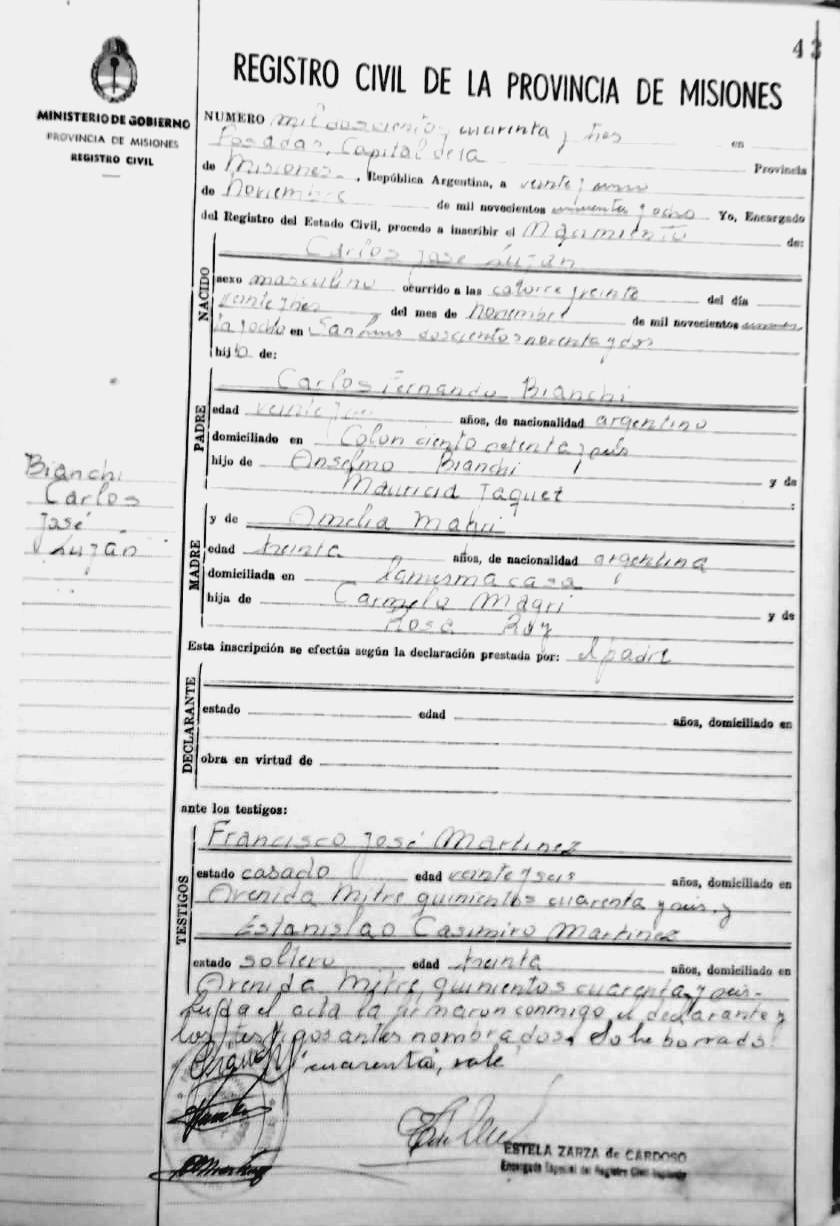 43
REGISTRO CIVIL DE LA PROVINCIA DE MISIONES
MINISTERIO DE GOBIERNO
PROVINCIA DE MISIONES
REGISTRO CIVIL
NUMERO mil doscientos cuarenta y tres en
Posadas, Capital de la Provincia
de Misiones, República Argentina, a veinte y
de Noviembre de mil novecientos cincuenta y ocho Yo, Encargado
del Registro del Estado Civil, procedo a inscribir el de:
NACIDO
Carlos José Luján
sexo masculino ocurrido a las catorce y veinte del día
veinte y tres del mes de Noviembre de mil novecientos
ta y ocho en San Luis doscientos noventa y dos
hijo de:
PADRE
Carlos Fernando Bianchi
edad veinte y años, de nacionalidad argentino
domiciliado en Colon ciento setenta y seis
hijo de Anselmo Bianchi y de
Mauricia Jaquet :
Bianchi
Carlos
José
Luján
MADRE
y de Amelia
edad treinta años, de nacionalidad argentina
domiciliada en la misma casa
hija de Carmelo y de
Rosa
Esta inscripción se efectúa según la declaración prestada por: el padre
DECLARANTE
estado edad años, domiciliado en
obra en virtud de
ante los testigos:
TESTIGOS
Francisco José Martinez
estado casado edad veinte y seis años, domiciliado en
Avenida Mitre quinientos cuarenta y seis, y
Estanislao Casimiro Martinez
estado soltero edad treinta años, domiciliado en
Avenida Mitre quinientos cuarenta y seis.-
Leída el acta la firmaron conmigo el declarante y
los testigos antes nombrados. Sobre borrado:
cuarenta, vale
ESTELA ZARZA de CARDOSO
Encargada Especial del Registro Civil